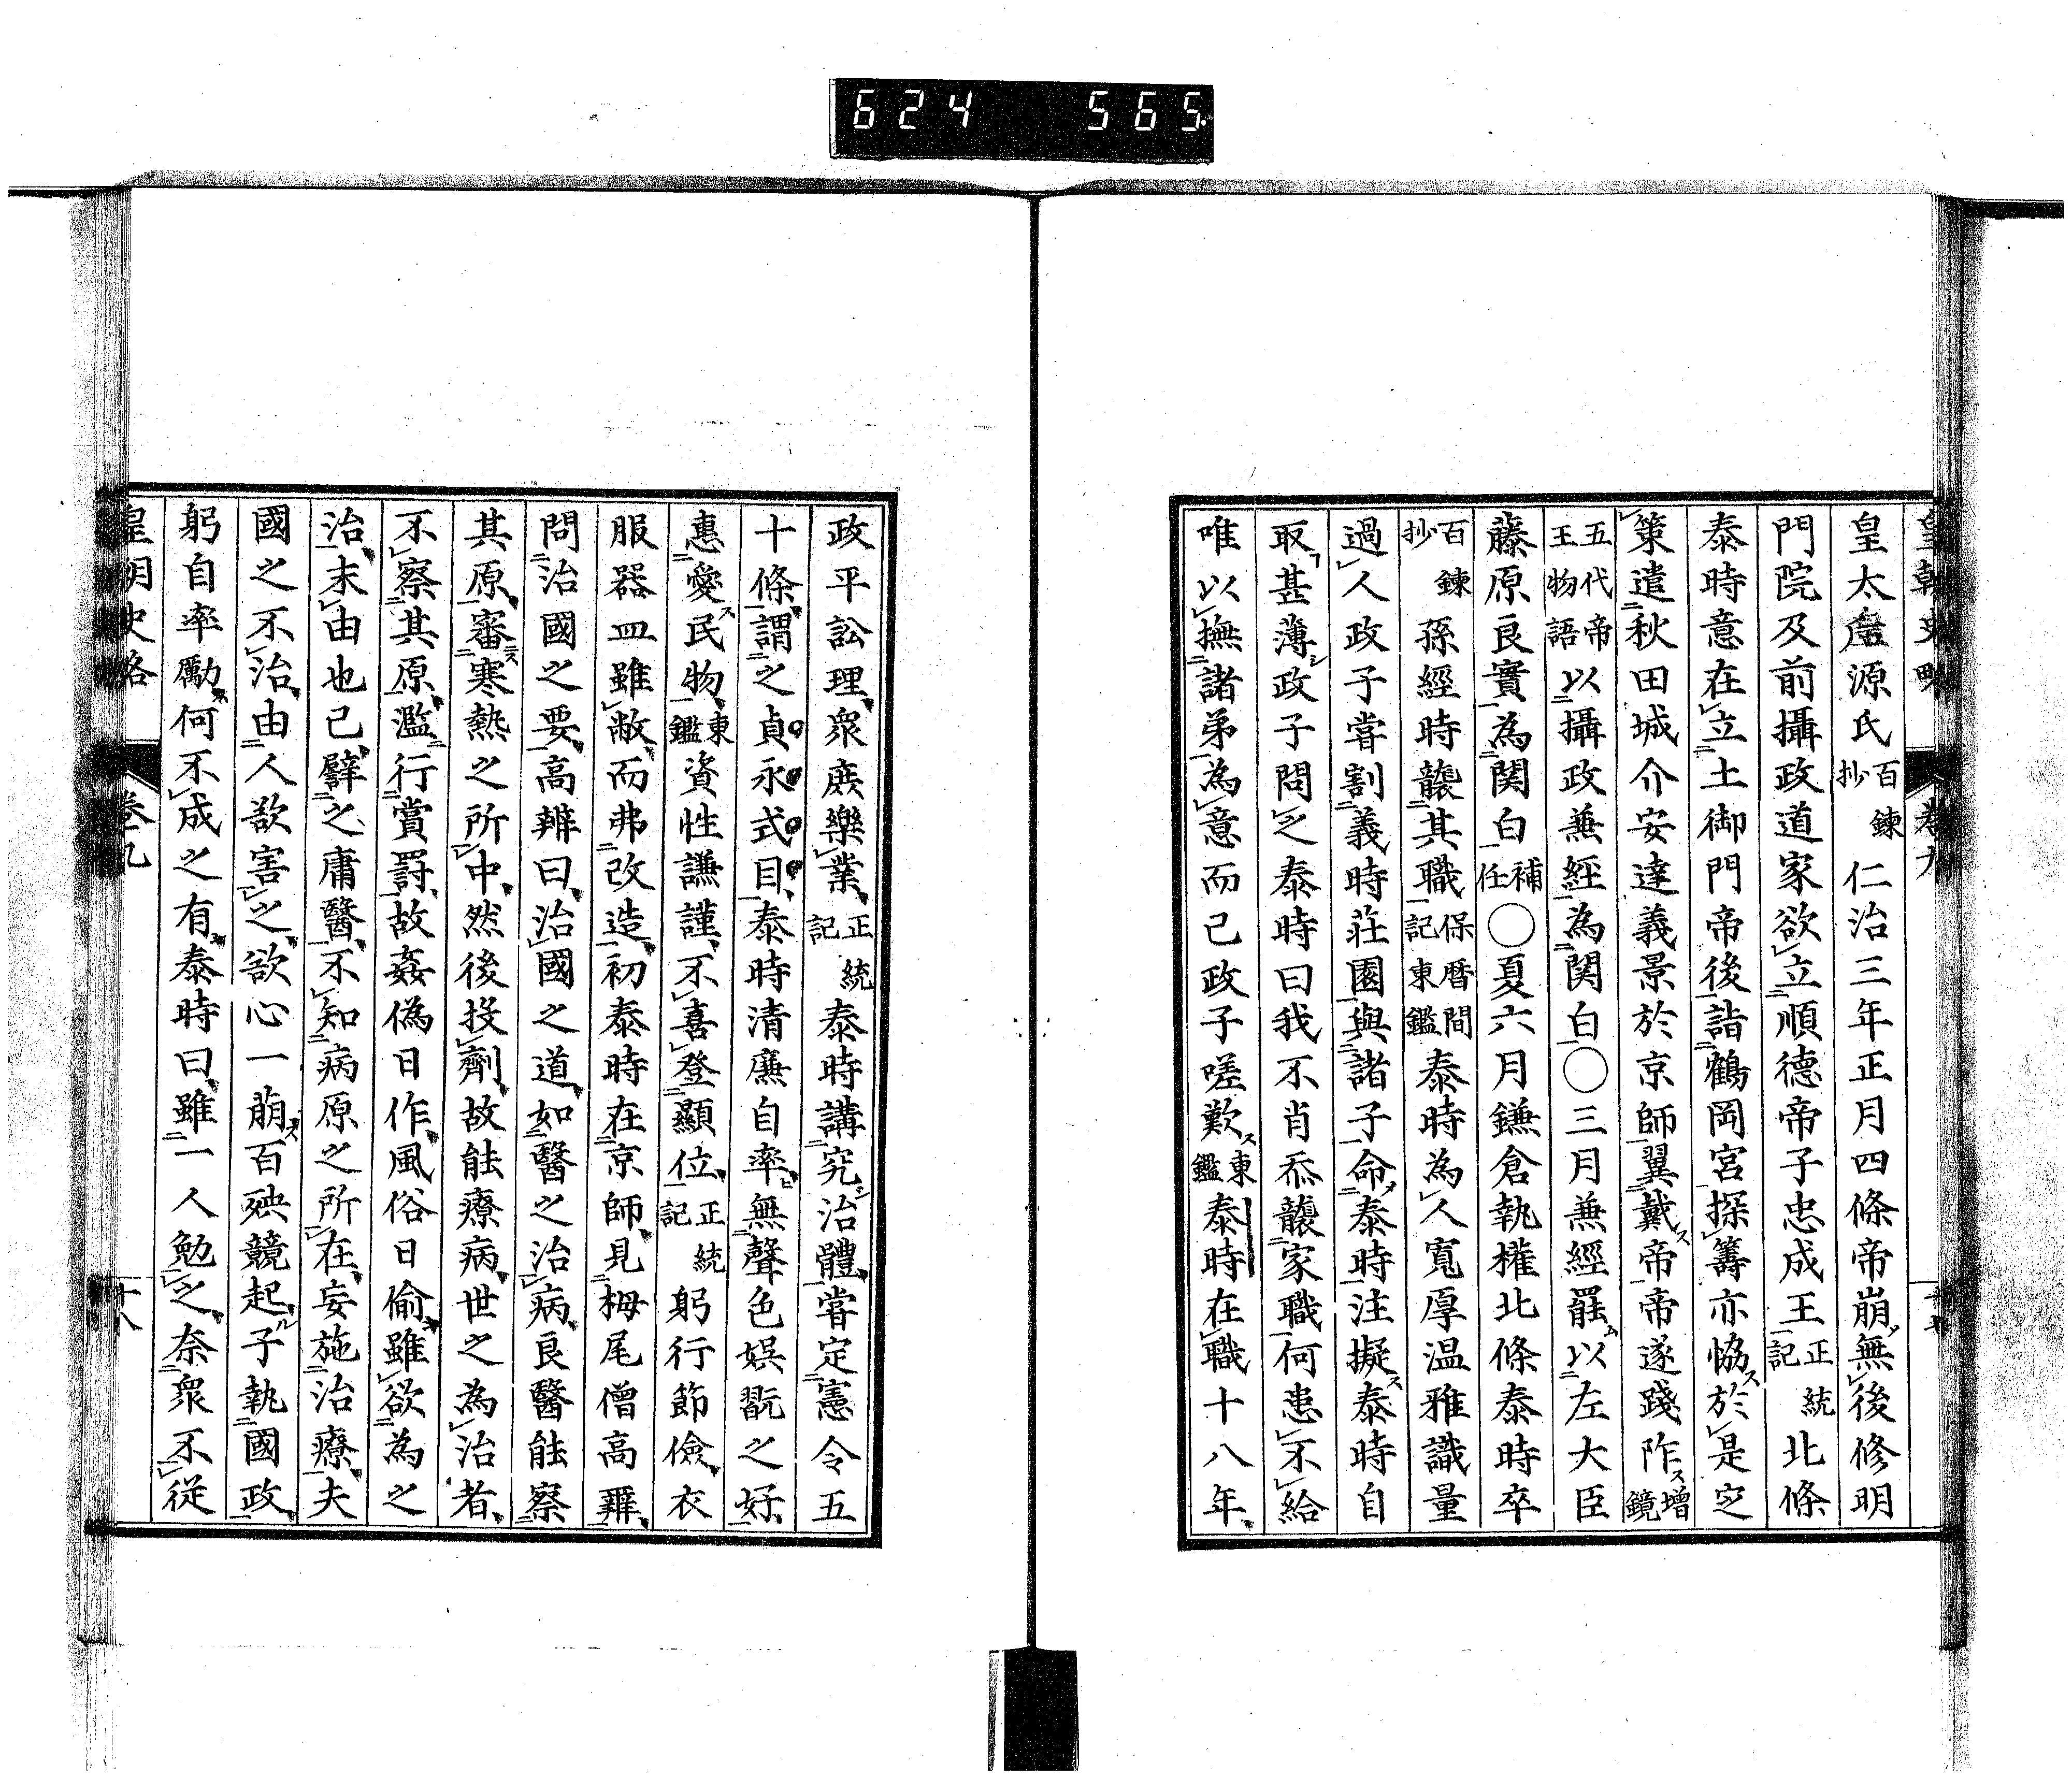 624 565
皇朝史略 卷九
皇太后源氏百鍊抄仁治三年正月四條帝崩無後修明
門院及前攝政道家欲立順德帝子忠成王正統記北條
泰時意在立土御門帝後詣鶴岡宮探籌亦恊於是定
策遣秋田城介安達義景於京師翼戴帝帝遂踐阼増鏡
五代帝王物語以攝政兼經為関白〇三月兼經罷以左大臣
藤原良實為関白補任〇夏六月鎌倉執權北條泰時卒
百鍊抄孫經時襲其職保曆間記東鑑泰時為人寬厚温雅識量
過人政子嘗割義時莊園與諸子命泰時注擬泰時自
取甚薄政子問之泰時曰我不肖忝襲家職何患不給
唯以撫諸弟為意而已政子嗟歎東鑑泰時在職十八年
政平訟理衆庶樂業正統記泰時講究治體嘗定憲令五
十條謂之貞永式目泰時清廉自率無聲色娯翫之好
惠愛民物東鑑資性謙謹不喜登顯位正統記躬行節儉衣
服器皿雖敝而弗改造初泰時在京師見栂尾僧高辨
問治國之要高辨曰治國之道如醫之治病良醫能察
其原審寒熱之所中然後投劑故能療病世之為治者
不察其原濫行賞罸故姦偽日作風俗日偷雖欲為之
治末由也已譬之庸醫不知病原之所在妄施治療夫
國之不治由人欲害之欲心一萠百殃競起子執國政
躬自率勵何不成之有泰時曰雖一人勉之奈衆不從
皇朝史略 卷九 十八